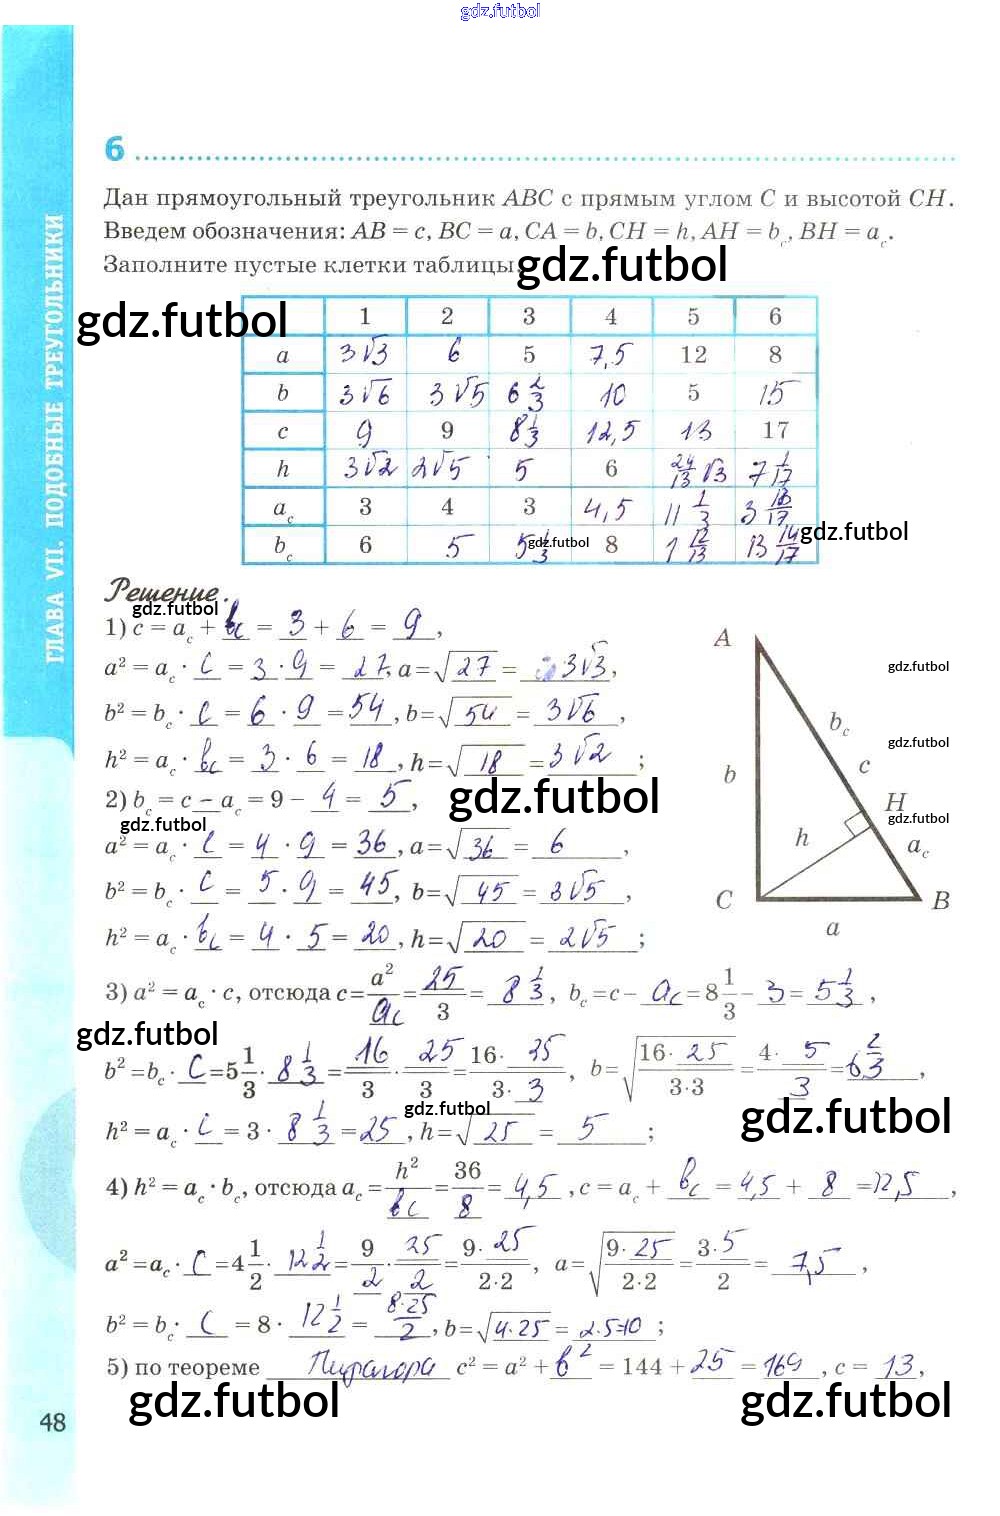 gdz.futbol
6
Дан прямоугольный треугольник ABC с прямым углом C и высотой CH.
Введем обозначения: AB = c, BC = a, CA = b, CH = h, AH = b_c, BH = a_c.
Заполните пустые клетки таблицы.
gdz.futbol
gdz.futbol
1 2 3 4 5 6
a 3√3 6 5 7,5 12 8
b 3√6 3√5 6 2/3 10 5 15
c 9 9 8 1/3 12,5 13 17
h 3√2 2√5 5 6 24/13 √3 7 1/17
a_c 3 4 3 4,5 11 1/3 3 13/17
b_c 6 5 5 1/3 8 1 12/13 13 14/17
gdz.futbol
gdz.futbol
ГЛАВА VII. ПОДОБНЫЕ ТРЕУГОЛЬНИКИ
Решение.
gdz.futbol
1) c = a_c + b_c = 3 + 6 = 9,
a² = a_c · c = 3 · 9 = 27, a = √27 = 3√3,
b² = b_c · c = 6 · 9 = 54, b = √54 = 3√6,
h² = a_c · b_c = 3 · 6 = 18, h = √18 = 3√2;
2) b_c = c – a_c = 9 – 4 = 5,
gdz.futbol
gdz.futbol
a² = a_c · c = 4 · 9 = 36, a = √36 = 6,
b² = b_c · c = 5 · 9 = 45, b = √45 = 3√5,
h² = a_c · b_c = 4 · 5 = 20, h = √20 = 2√5;
A
gdz.futbol
b_c
gdz.futbol
c
b
H
gdz.futbol
h
a_c
C
B
a
3) a² = a_c · c, отсюда c = a²/a_c = 25/3 = 8 1/3, b_c = c – a_c = 8 1/3 – 3 = 5 1/3,
gdz.futbol
b² = b_c · c = 5 1/3 · 8 1/3 = 16/3 · 25/3 = 16 · 25/3 · 3, b = √16 · 25/3·3 = 4 · 5/3 = 6 2/3,
gdz.futbol
gdz.futbol
h² = a_c · c = 3 · 8 1/3 = 25, h = √25 = 5;
4) h² = a_c · b_c, отсюда a_c = h²/b_c = 36/8 = 4,5, c = a_c + b_c = 4,5 + 8 = 12,5,
a² = a_c · c = 4 1/2 · 12 1/2 = 9/2 · 25/2 = 9 · 25/2·2, a = √9 · 25/2·2 = 3 · 5/2 = 7,5,
b² = b_c · c = 8 · 12 1/2 = 8·25/2, b = √4·25 = 2·5=10;
5) по теореме Пифагора c² = a² + b² = 144 + 25 = 169, c = 13,
gdz.futbol
gdz.futbol
48